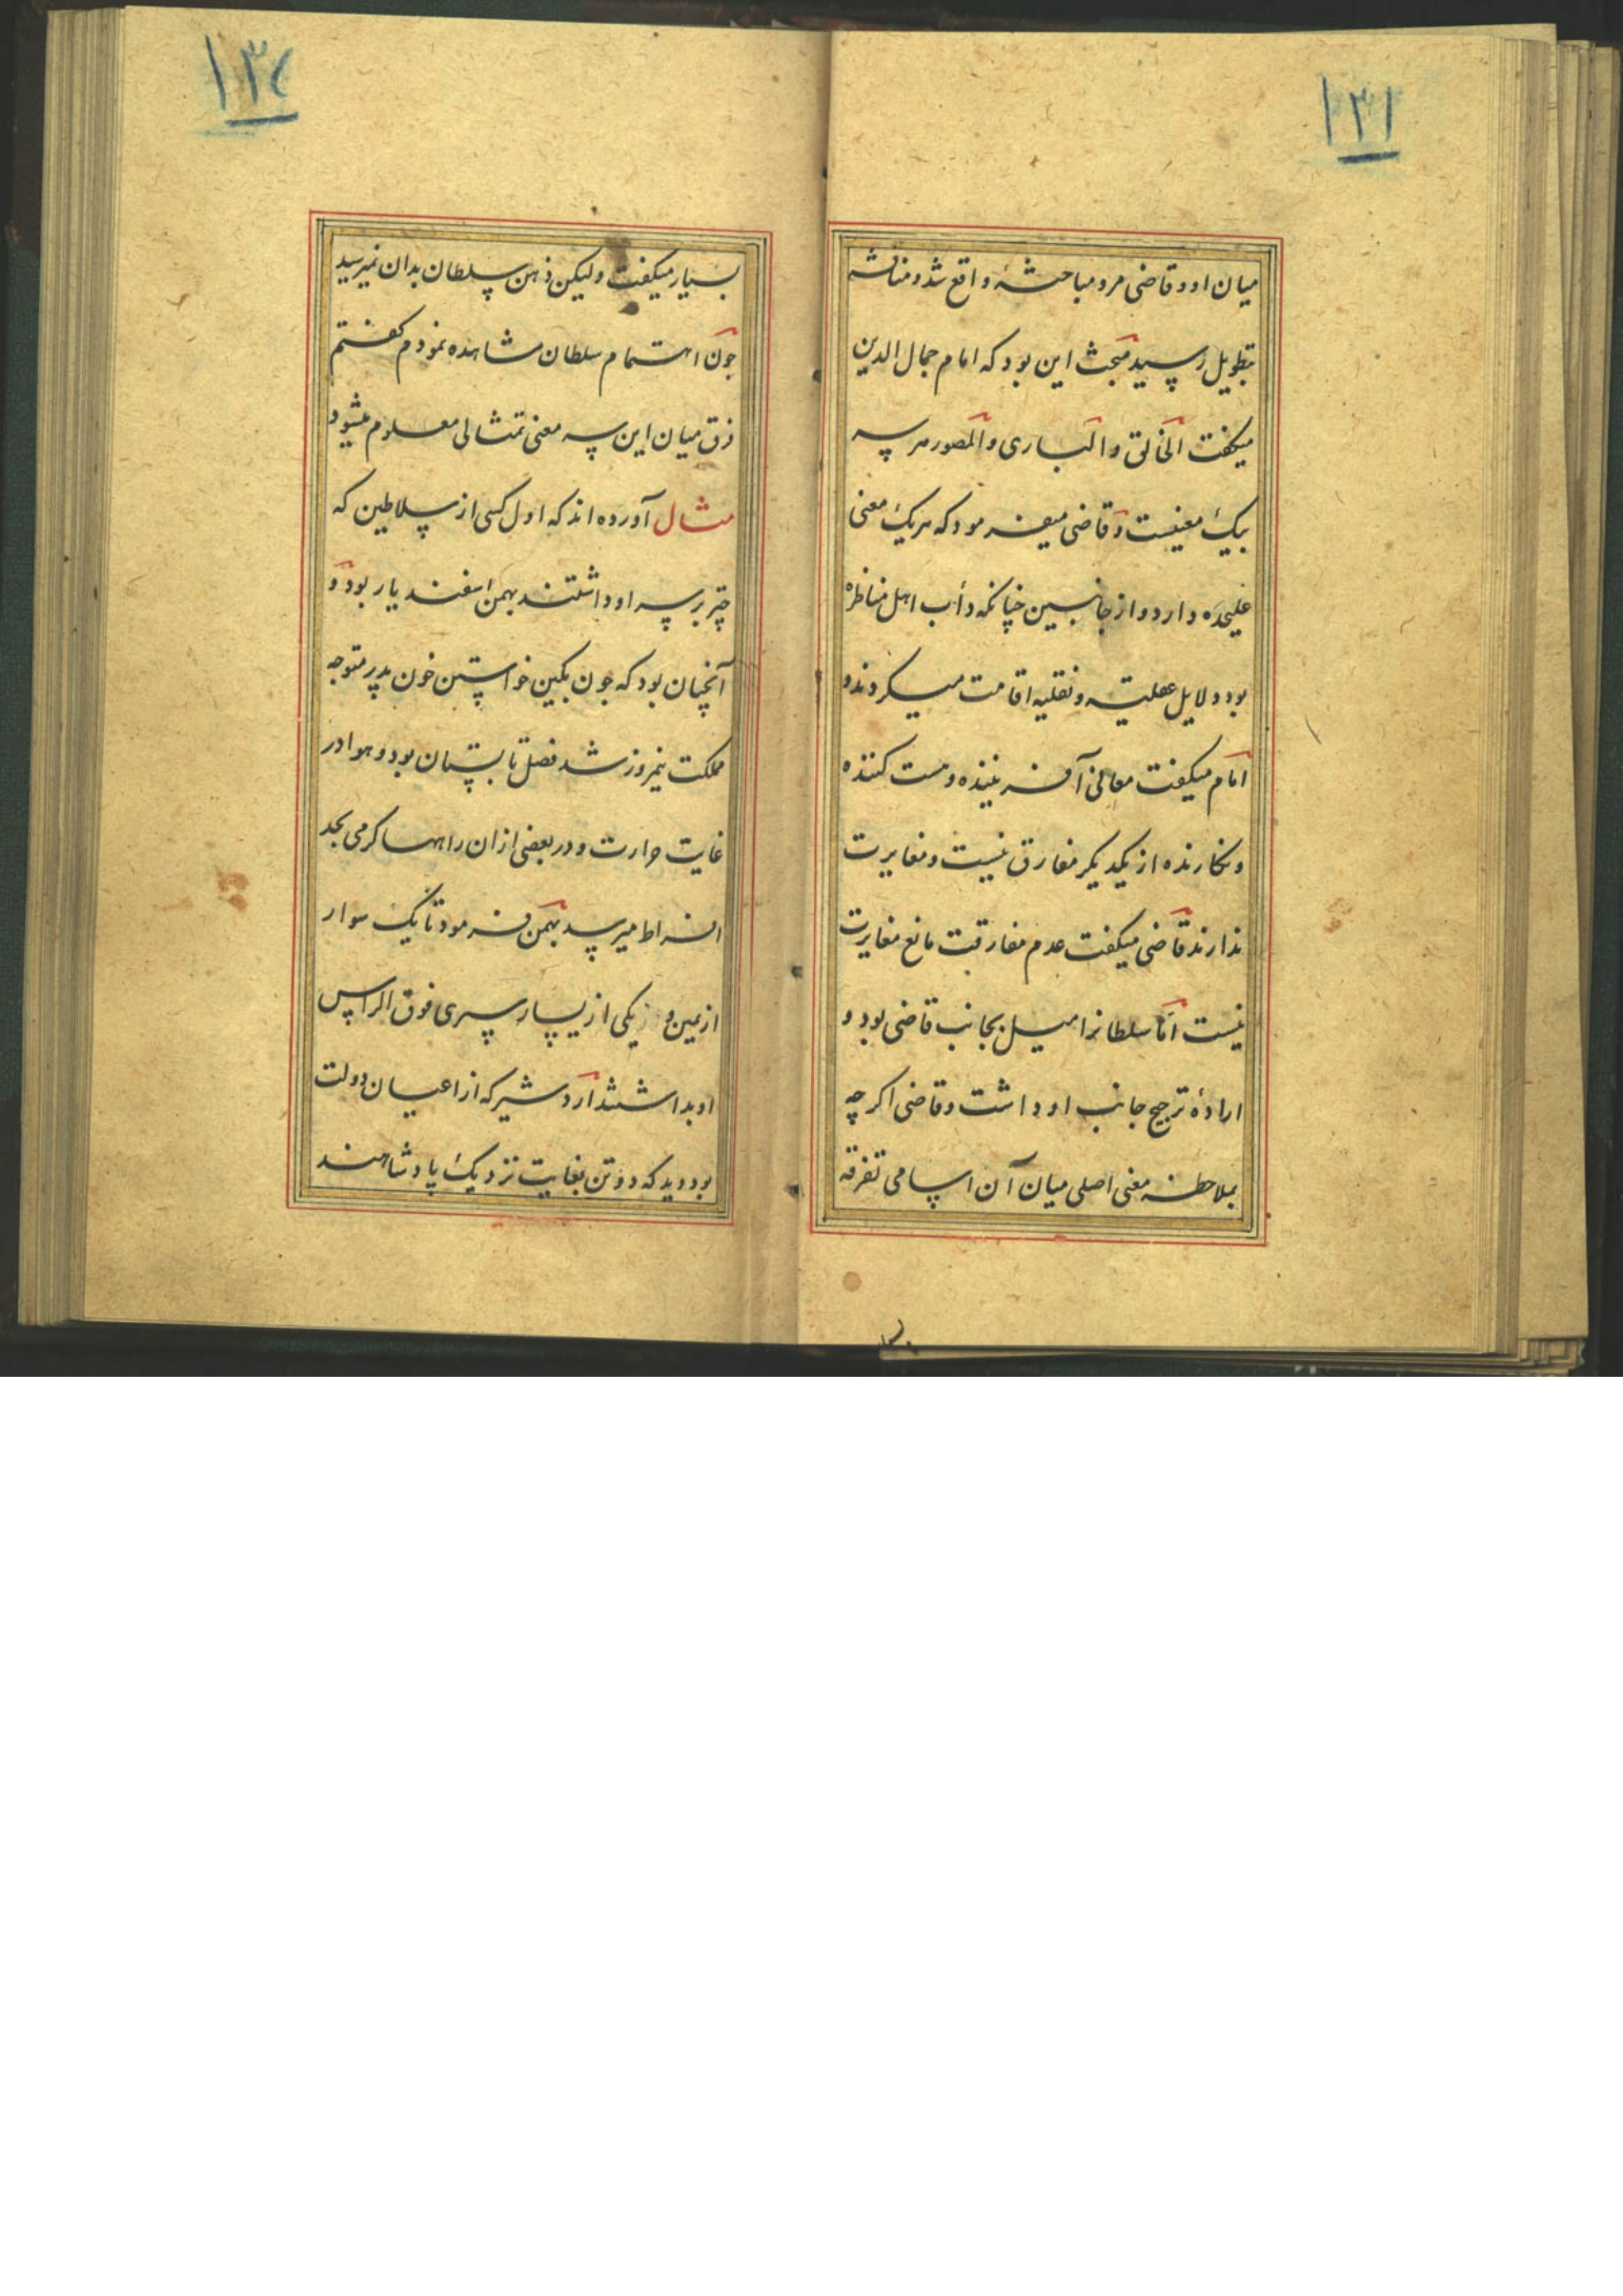 ۱۳۱
میان او و قاضی مرو مباحثهٔ واقع شد و مناقشه
بتطویل رسید مبحث این بود که امام جمال الدین
میکفت الخالق والباری والمصور هر سه
بیک معنیست و قاضی میفرمود که هر یک معنی
علیحده دارد و از جانبین چنانکه دأب اهل مناظره
بود دلایل عقلیه و نقلیه اقامت میکردند و
امام میکفت معانی آفریننده و هست کننده
و نکارنده از یکدیکر مفارق نیست و مغایرت
ندارند قاضی میکفت عدم مفارقت مانع مغایرت
نیست اما سلطانرا میل بجانب قاضی بود و
ارادهٔ ترجیح جانب او داشت و قاضی اکرچه
بملاحظه معنی اصلی میان آن اسامی تفرقه
۱۳۲
بسیار میکفت ولیکن ذهن سلطان بدان نمیرسید
چون اهتمام سلطان مشاهده نمودم کفتم
فرق میان این سه معنی تمثالی معلوم میشود
مثال آورده اند که اول کسی از سلاطین که
چتر بر سر او داشتند بهمن اسفندیار بود و
آنچنان بود که چون بکین خواستن خون پدر متوجه
مملکت نیمروز شد فصل تابستان بود و هوا در
غایت حرارت و در بعضی از ان راهها کرمی بحد
افراط میرسید بهمن فرمود تا یک سوار
از یمین و یکی از یسار سپری فوق الراس
او بداشتند اردشیر که از اعیان دولت
بود دید که دو تن بغایت نزدیک پادشاهند